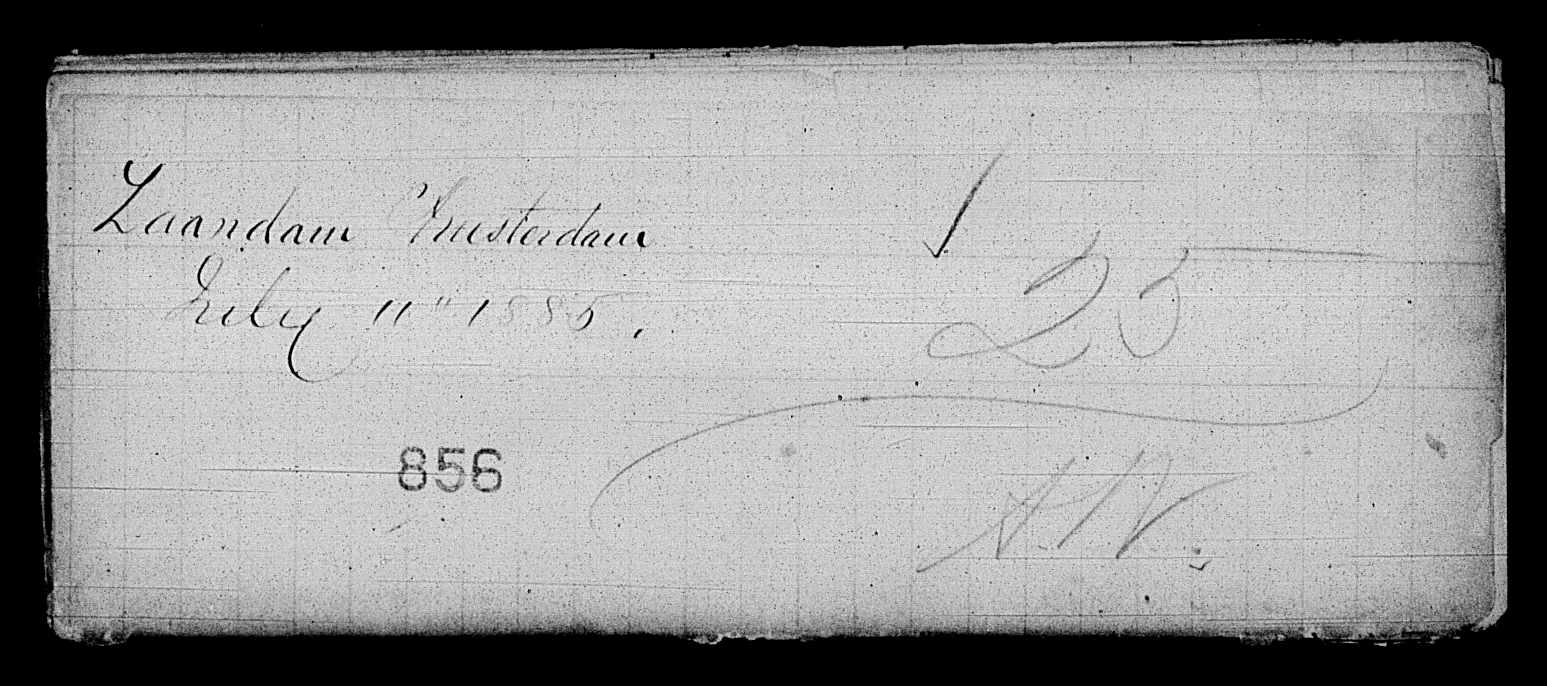 Zaandam Amsterdam
July 11" 1885.
25
856